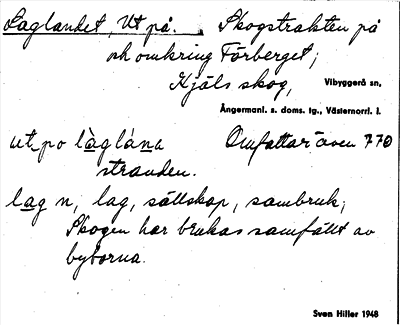 Laglandet, Ut på. Skogstrakten på
och omkring Förberget;
Hjäls skog, Vibyggerå sn,
Ångermanl. s. doms. tg., Västernorrl. l.
ut_po làglána Omfattar även 770
stranden.
lag n, lag, sällskap, sambruk;
Skogen har brukas samfällt av
byborna.
Sven Hiller 1948